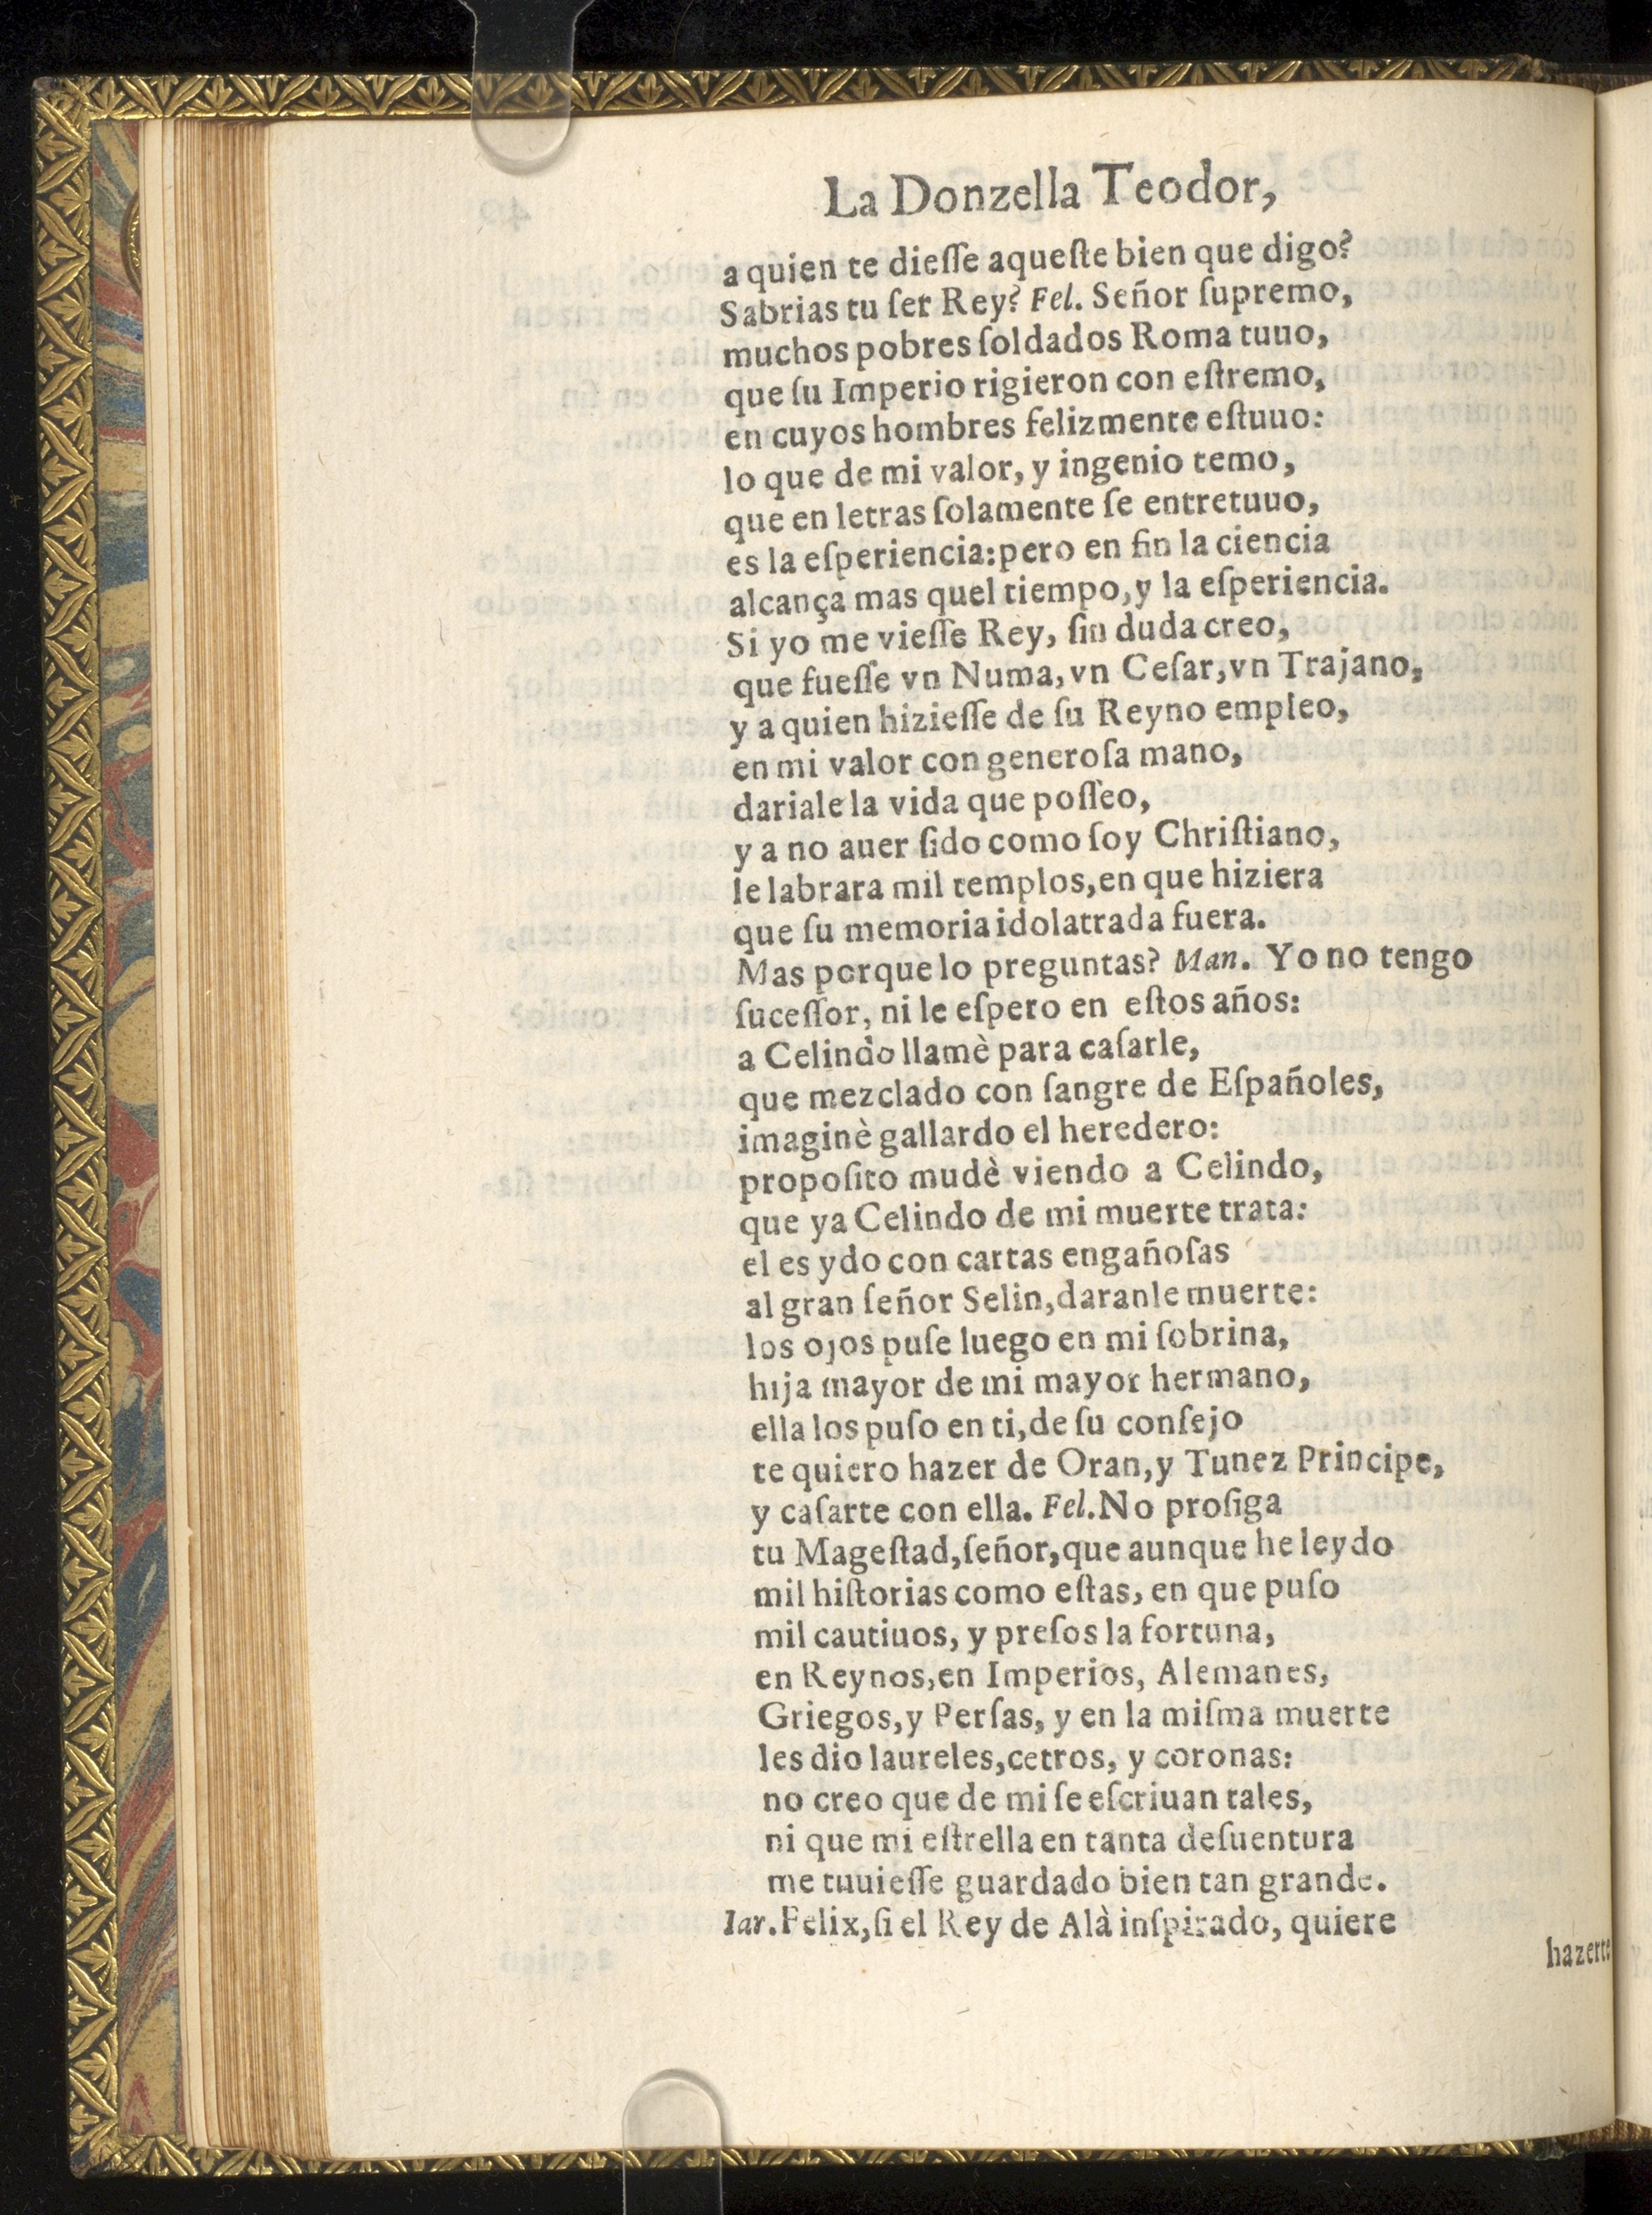 La Donzella Teodor,
a quien te dieſſe aqueſte bien que digo?
Sabrias tu ſer Rey? Fel. Señor ſupremo,
muchos pobres ſoldados Roma tuuo,
que ſu Imperio rigieron con eſtremo,
en cuyos hombres felizmente eſtuuo:
lo que de mi valor, y ingenio temo,
que en letras ſolamente ſe entretuuo,
es la eſperiencia: pero en fin la ciencia
alcança mas quel tiempo, y la eſperiencia.
Si yo me vieſſe Rey, ſin duda creo,
que fueſſe vn Numa, vn Ceſar, vn Trajano,
y a quien hizieſſe de ſu Reyno empleo,
en mi valor con generoſa mano,
dariale la vida que poſſeo,
y a no auer ſido como ſoy Chriſtiano,
le labrara mil templos, en que hiziera
que ſu memoria idolatrada fuera.
Mas porque lo preguntas? Man. Yo no tengo
ſuceſſor, ni le eſpero en eſtos años:
a Celindo llamè para caſarle,
que mezclado con ſangre de Eſpañoles,
imaginè gallardo el heredero:
propoſito mudè viendo a Celindo,
que ya Celindo de mi muerte trata:
el es ydo con cartas engañoſas
al gran ſeñor Selin, daranle muerte:
los ojos puſe luego en mi ſobrina,
hija mayor de mi mayor hermano,
ella los puſo en ti, de ſu conſejo
te quiero hazer de Oran, y Tunez Principe,
y caſarte con ella. Fel. No proſiga
tu Mageſtad, ſeñor, que aunque he leydo
mil hiſtorias como eſtas, en que puſo
mil cautiuos, y preſos la fortuna,
en Reynos, en Imperios, Alemanes,
Griegos, y Perſas, y en la miſma muerte
les dio laureles, cetros, y coronas:
no creo que de mi ſe eſcriuan tales,
ni que mi eſtrella en tanta deſuentura
me tuuieſſe guardado bien tan grande.
Iar. Felix, ſi el Rey de Alà inſpirado, quiere
hazerte